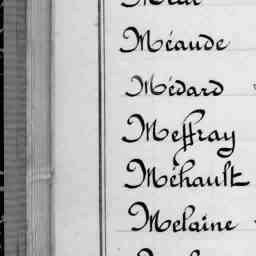 Méaude
Médard
Meffray
Méhault
Melaine